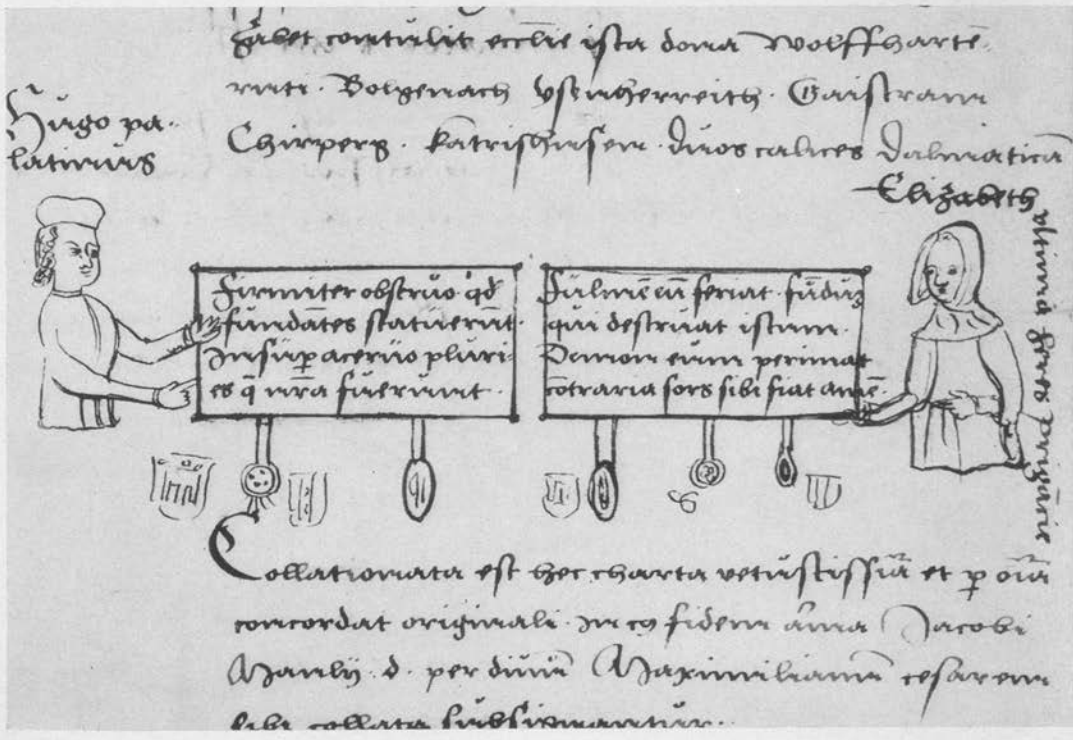 gabet contulit ecclie ista dona Wolffharte
ruti. Bolgenach ysenherreith. Gaistrann
Hugo pa
latinus
Chirperg. katrishusen. duos calices dalmaticā
Elizabeth
ultima heres prigācie
Firmiter obstruo qd
fundātes statuerūt.
Insup acervo pluri
es q nr̄a fuerunt.
Fulmē eū feriat. fūdū
qui destruat istum.
Demon eum perimat
cōtraria sors sibi fiat amē.
Collationata est hec charta vetustissia et p oīa
concordat originali. In cꝫ fidem arma Jacobi
Manlij. d. per divū Maximilianū cesarem
sibi collata subsignantur.